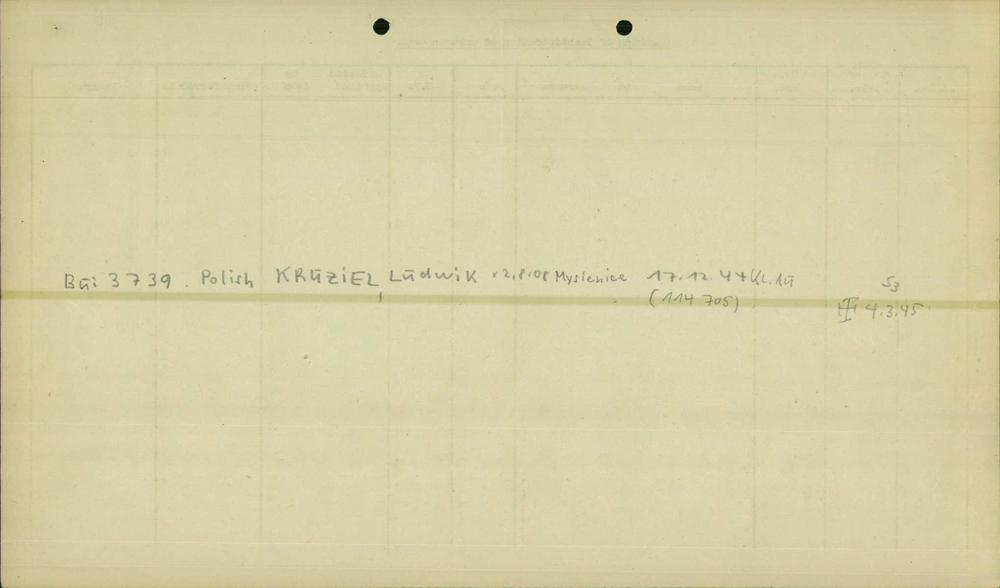 Bū: 3739. Polish KRŪZiEL Lūdwik x 2.8.08 Myslenice 17.12.44 KL.Aū 53
(114 705) III 4.3.45